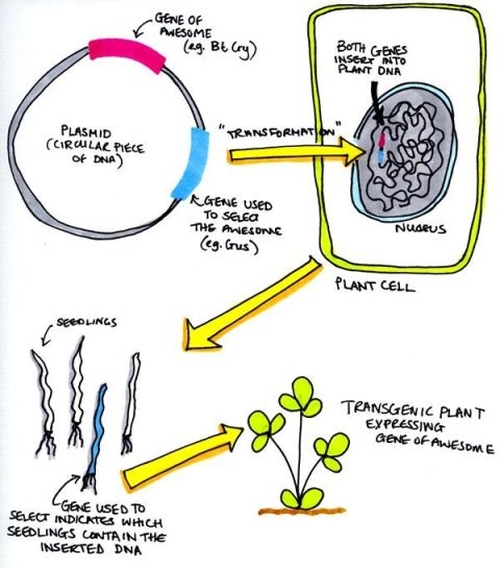 GENE OF
AWESOME
(eg. Bt Cry)
PLASMID
(CIRCULAR PIECE
OF DNA)
GENE USED
TO SELECT
THE AWESOME
(eg. Gus)
"TRANSFORMATION"
BOTH GENES
INSERT INTO
PLANT DNA
NUCLEUS
PLANT CELL
SEEDLINGS
GENE USED TO
SELECT INDICATES WHICH
SEEDLINGS CONTAIN THE
INSERTED DNA
TRANSGENIC PLANT
EXPRESSING
GENE OF AWESOME